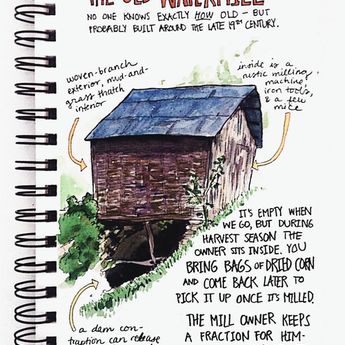 THE OLD WATERMILL
NO ONE KNOWS EXACTLY HOW OLD – BUT
PROBABLY BUILT AROUND THE LATE 19TH CENTURY.
woven-branch
exterior, mud-and-
grass thatch
interior
inside is a
rustic milling
machine,
iron tools,
& a few
mice
IT'S EMPTY WHEN
WE GO, BUT DURING
HARVEST SEASON THE
OWNER SITS INSIDE. YOU
BRING BAGS OF DRIED CORN
AND COME BACK LATER TO
PICK IT UP ONCE IT'S MILLED.
THE MILL OWNER KEEPS
A FRACTION FOR HIM-
a dam con-
traption can release